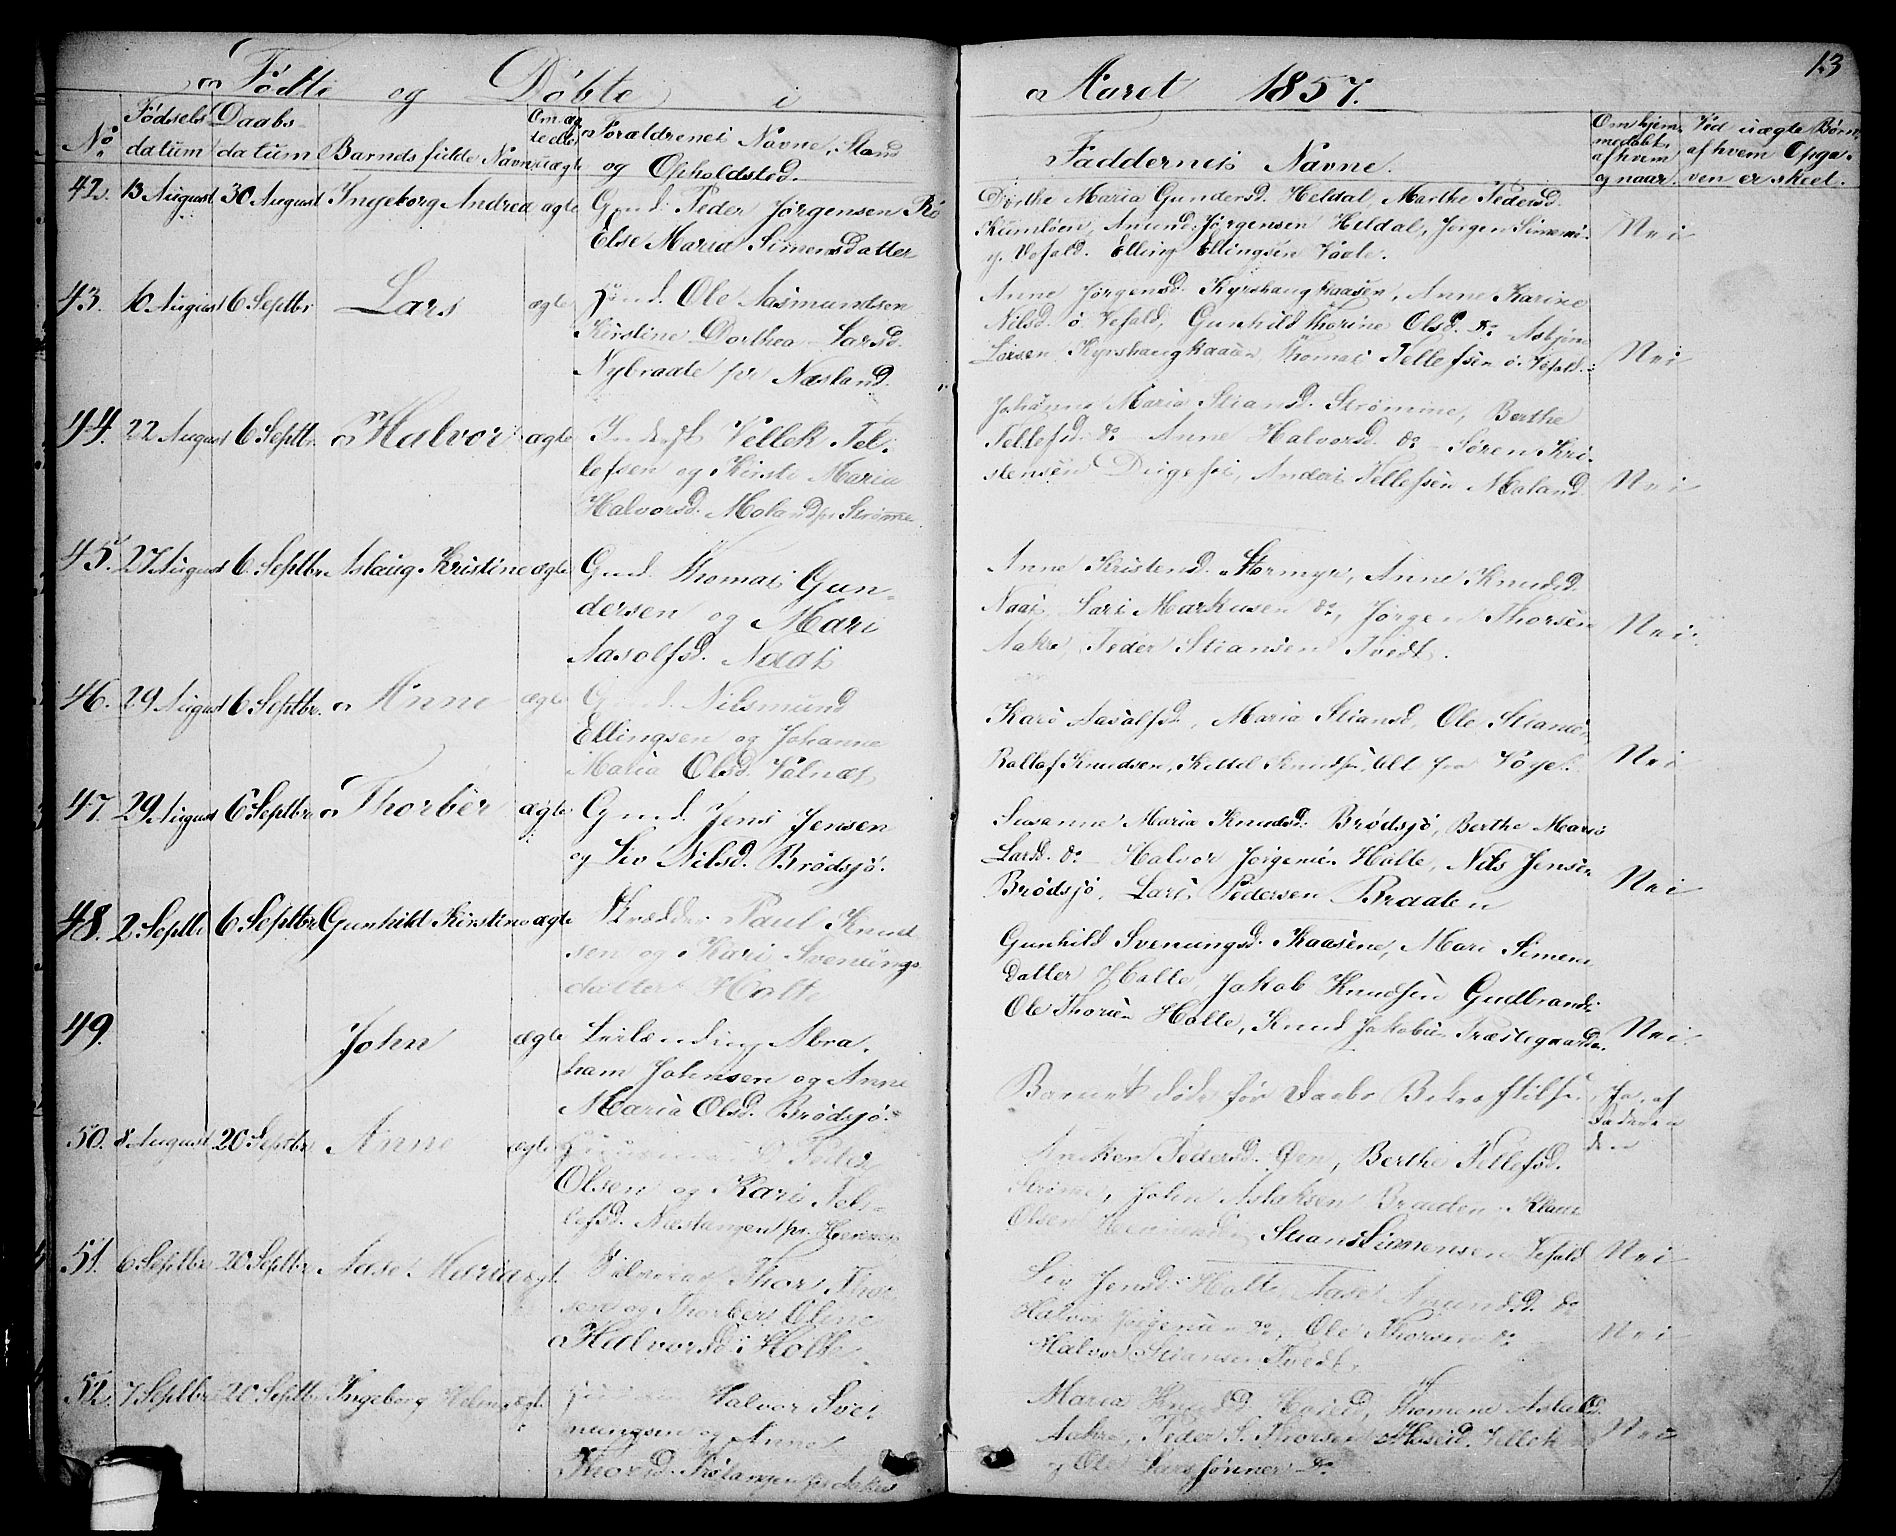 Fødte og Døbte i Aaret 1857.
13
No. Fødsels datum Daabs datum Barnds fulde Navn Om ægte eller uægte Forældrenes Navne, Stand og Opholdsted. Faddernes Navne. Om hjemmedøbt, af hvem og naar. Ved uægte Børn af hvem Opgaven er skeet.
42. 13 August 30 August Ingeborg Andrea ægte Gmd. Peder Jørgensen
Else Maria Simensdatter
Dorthe Maria Gundersd. Heldal, Marthe Pedersd.
Amund Jørgensen Heldal, Jørgen
Vefald. Elling Ellingsen Vaale. Nei
43. 10 August 6 Septbr Lars ægte Ole Aasmundsen
Kirstine Dorthea Larsd.
Nybraate pr Næsland.
Anne Jørgensd. Kyrshaugkaasen, Anne Karine
Nilsd. ö Vefald, Gunhild Thorine Olsd. do Asbjørn
Larsen Kyrshaugkaasen Thomas Tellefsen ö. Vefald. Nei
44. 22 August 6 Septbr. Halvor ægte Inderst Vellek Tel-
lefsen og Kirsti Maria
Halvorsd. Moland pr Strømme
Johanne Maria Stiansd. Strømme, Berthe
Tellefsd. do Anne Halvorsd. do Søren Kri-
stensen Digesø, Anders Tellefsen Moland. Nei
45. 27 August 6. Septbr Aslaug Kristine ægte Gmd. Thomas Gun-
dersen og Mari
Aasolfsd. Naas
Anne Kristend. Stormyr, Anne Knudsd.
Naas, Lars Markusen do, Jørgen Thorsen
Aakre, Peder Stiansen Tvedt. Nei.
46. 29 August 6 Septbr. Anne ægte Gmd. Nilsmund
Ellingsen og Johanne
Maria Olsd. Valnæs
Kari Aasolfsd, Maria Stiansd, Ole Stiansen
Rollef Knudsen, Kittel Knudsen, alt fra Nei
47. 29 August 6 Septbr Thorbør ægte Gmd. Jens Jensen
og Liv Nilsd. Brødsjø.
Susanne Maria Knudsd. Brødsjø, Berthe Maria
Larsd. do Halvor Jørgensen Holte, Nils Jensen
Brødsjø, Lars Pedersen Braaten Nei
48. 2 Septbr 6 Septbr Gunhild Kirstine ægte Skrædder Paul Knud
sen og Kari Svenungs
datter Holte
Gunhild Svenungsd. Kaasene, Mari Simens
Datter Holte, Jakob Knudsen Gudbrands
Ole Thorsen Holte, Knud Jakobsen Præstegaarden. Nei.
49. John ægte Leilænding Abra-
ham Johnsen og Anne
Maria Olsd. Brødsjø.
Barnet døde før Daabs Bekræftelse. Ja, af
Faderen
50. 8 August 20 Septbr Anne ægte Peder
Olsen og Kari Tel-
lefsd. Næstangen pr.
Aneken Pedersd. Øen, Berthe Tellefsd.
Strømme, John Aslaksen Braaden Klaus
Olsen Stian Simensen Vefald Nei
51. 6 Septbr 20 Septbr Aase Maria ægt. Thor Thor
sen og Thorber Oline
Halvorsd. Holte.
Liv Jensd. Holte, Aase Amundsd. do
Halvor Jørgensen do, Ole Thorsen do
Halvor Stiansen Tvedt. Nei
52. 7 Septbr 20 Septbr Ingeborg ægt. Halvor Sve-
nungsen og Anne
Thorsd. pr Aakre
Maria Knudsd. Thomene Aslaksd.
Aakre, Peder S. Thorsen Vellek
og Ole Larssønner do Nei